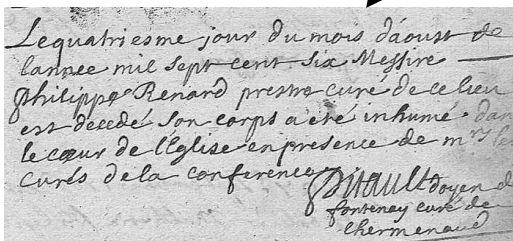 Lequatriesme jour du mois daoust de
lannee mil sept cent six Messire
philippe Renard prestre curé de ce lieu
est decedé son corps a eté inhumé dan
le cœur de l'Eglise en presence de mrs le
curés dela conference
doyen d
fontenay curé de